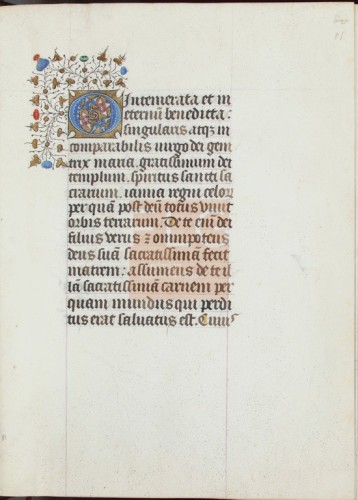 O Intemerata et in
eternum benedicta:
singularis atq3 in
comparabilis virgo dei geni
trix maria. gratissimum dei
templum. spiritus sancti sa
crarium. ianua regni celor
per quā post deū totus vivit
orbis terrarum. De te eni dei
filius verus ⁊ omnipotens
deus suā sacratissimā fecit
matrem: assumens de te il
lā sacratissimā carnem per
quam mundus qui perdi
tus erat salvatus est. Cuius